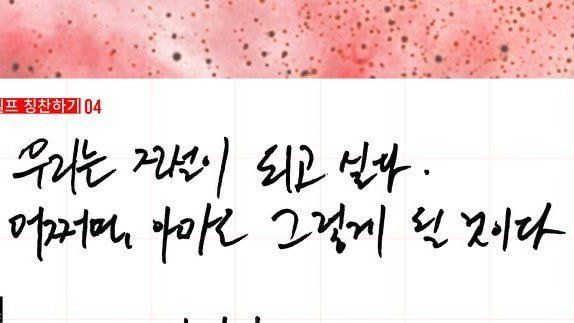 셀프 칭찬하기 04
우리는 전설이 되고 싶다.
어쩌면, 아마도 그렇게 될 것이다